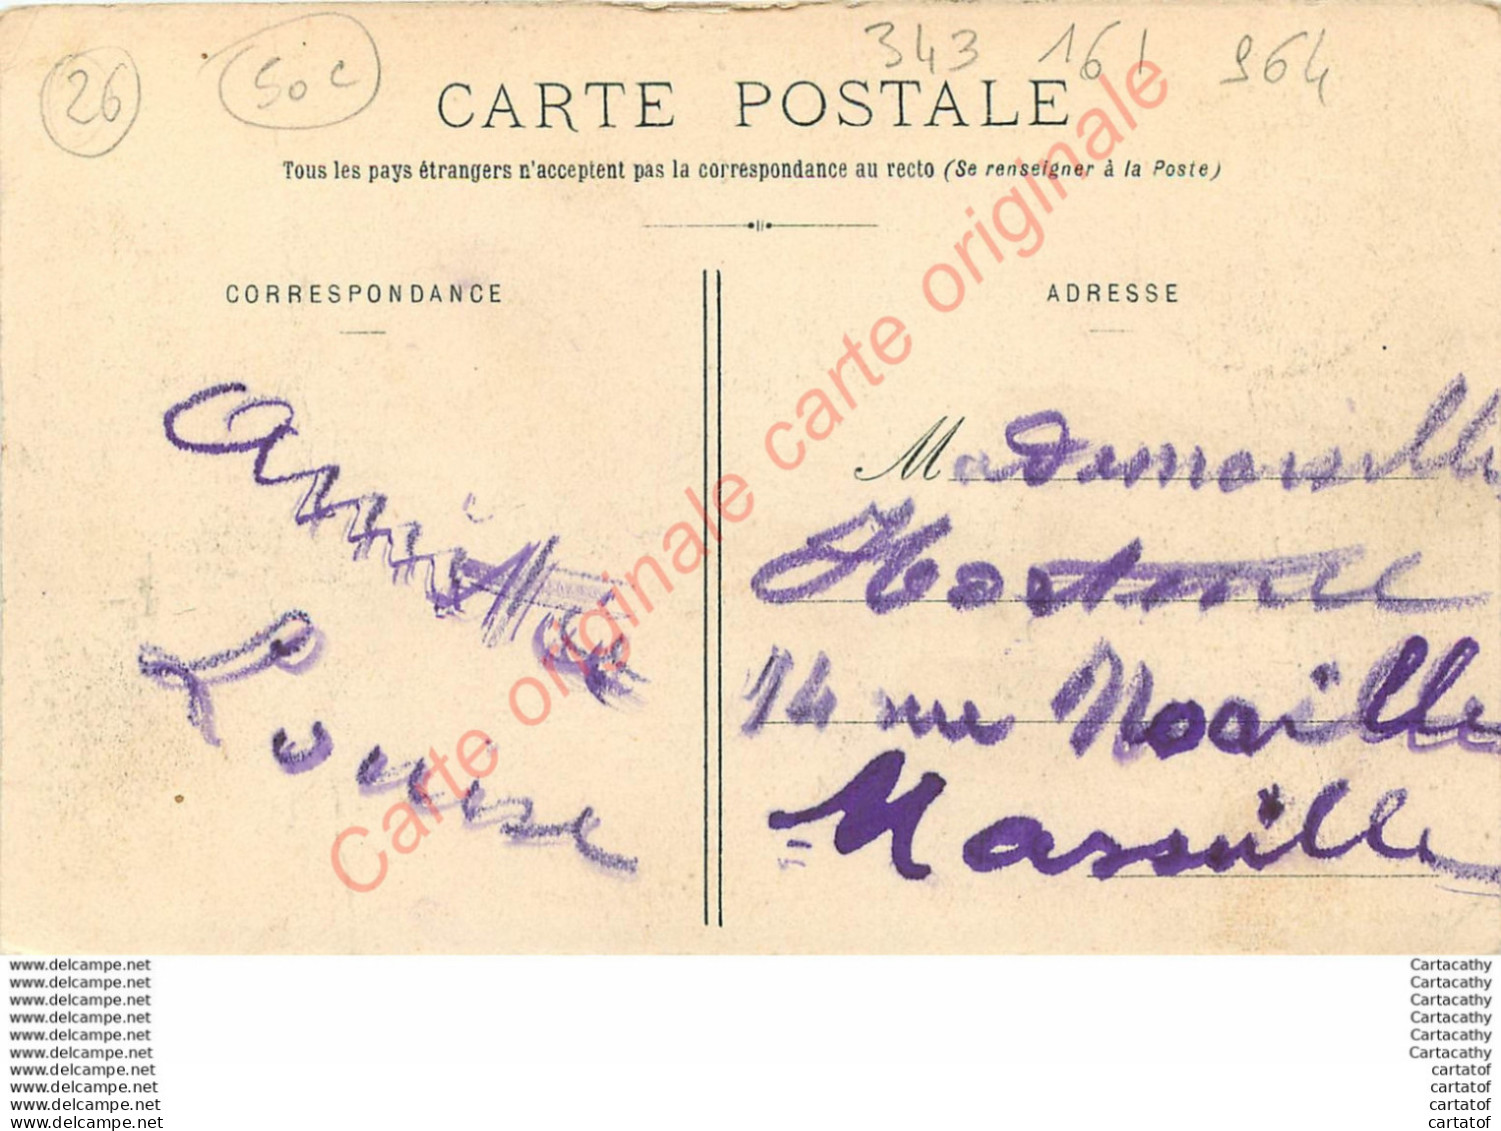 26
50 c
343 161 964
CARTE POSTALE
Tous les pays étrangers n'acceptent pas la correspondance au recto (Se renseigner à la Poste)
CORRESPONDANCE
ADRESSE
Amitié
Louise
Mademoiselle
14 rue Noaille
Marseille
Carte originale carte originale
www.delcampe.net Cartacathy
www.delcampe.net Cartacathy
www.delcampe.net Cartacathy
www.delcampe.net Cartacathy
www.delcampe.net Cartacathy
www.delcampe.net Cartacathy
www.delcampe.net cartatof
www.delcampe.net cartatof
www.delcampe.net cartatof
www.delcampe.net cartatof